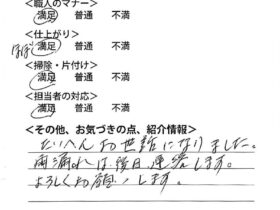 <職人のマナー>
満足 普通 不満
<仕上がり>
ほぼ 満足 普通 不満
<掃除・片付け>
満足 普通 不満
<担当者の対応>
満足 普通 不満
<その他、お気づきの点、紹介情報>
たいへんお世話になりました。
雨漏れは後日連絡します。
よろしくお願いします。